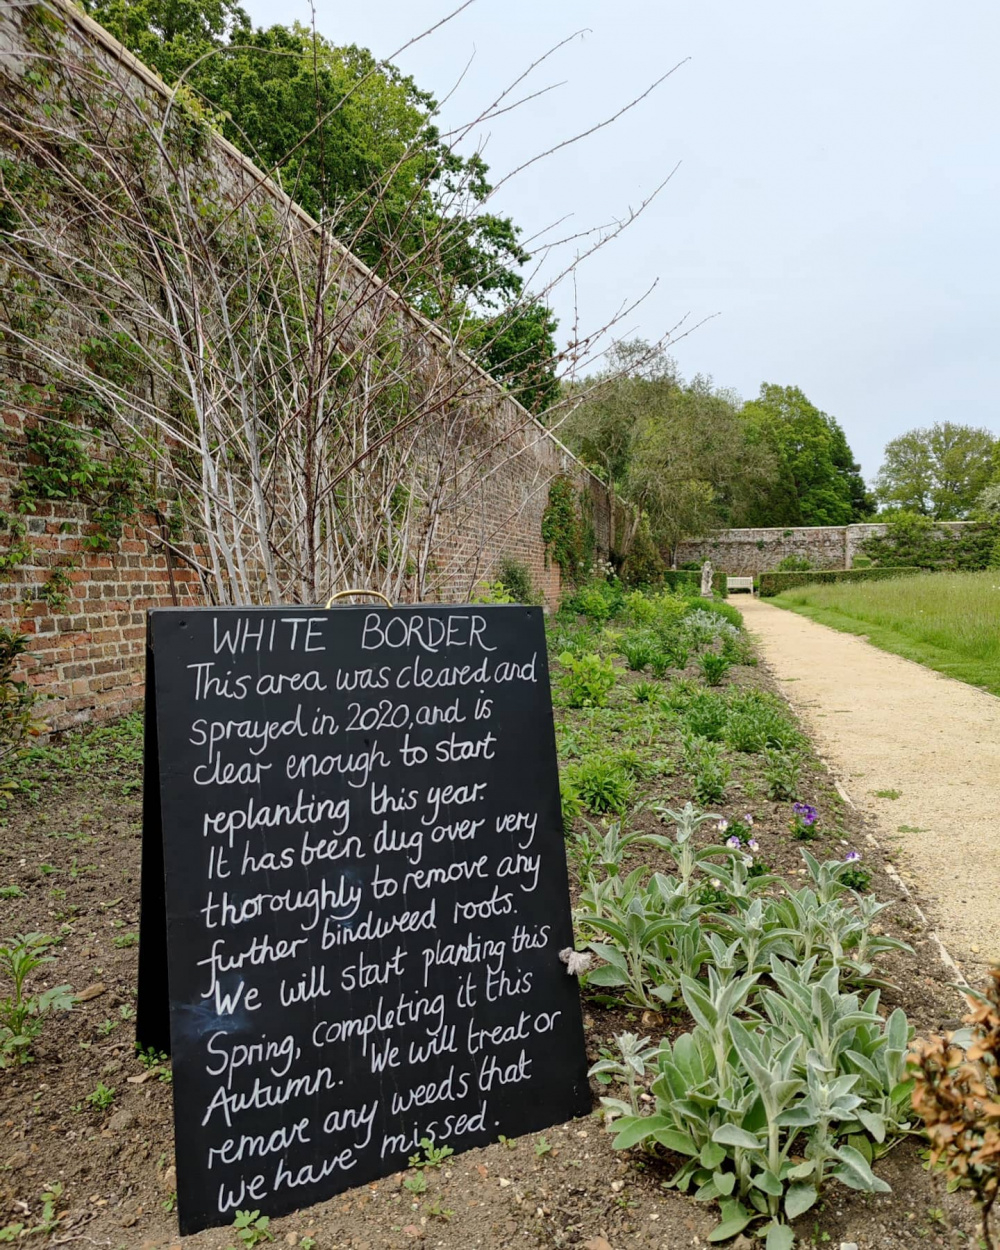 WHITE BORDER
This area was cleared and
sprayed in 2020, and is
clear enough to start
replanting this year.
It has been dug over very
thoroughly to remove any
further bindweed roots.
We will start planting this
Spring, completing it this
Autumn. We will treat or
remove any weeds that
we have missed.